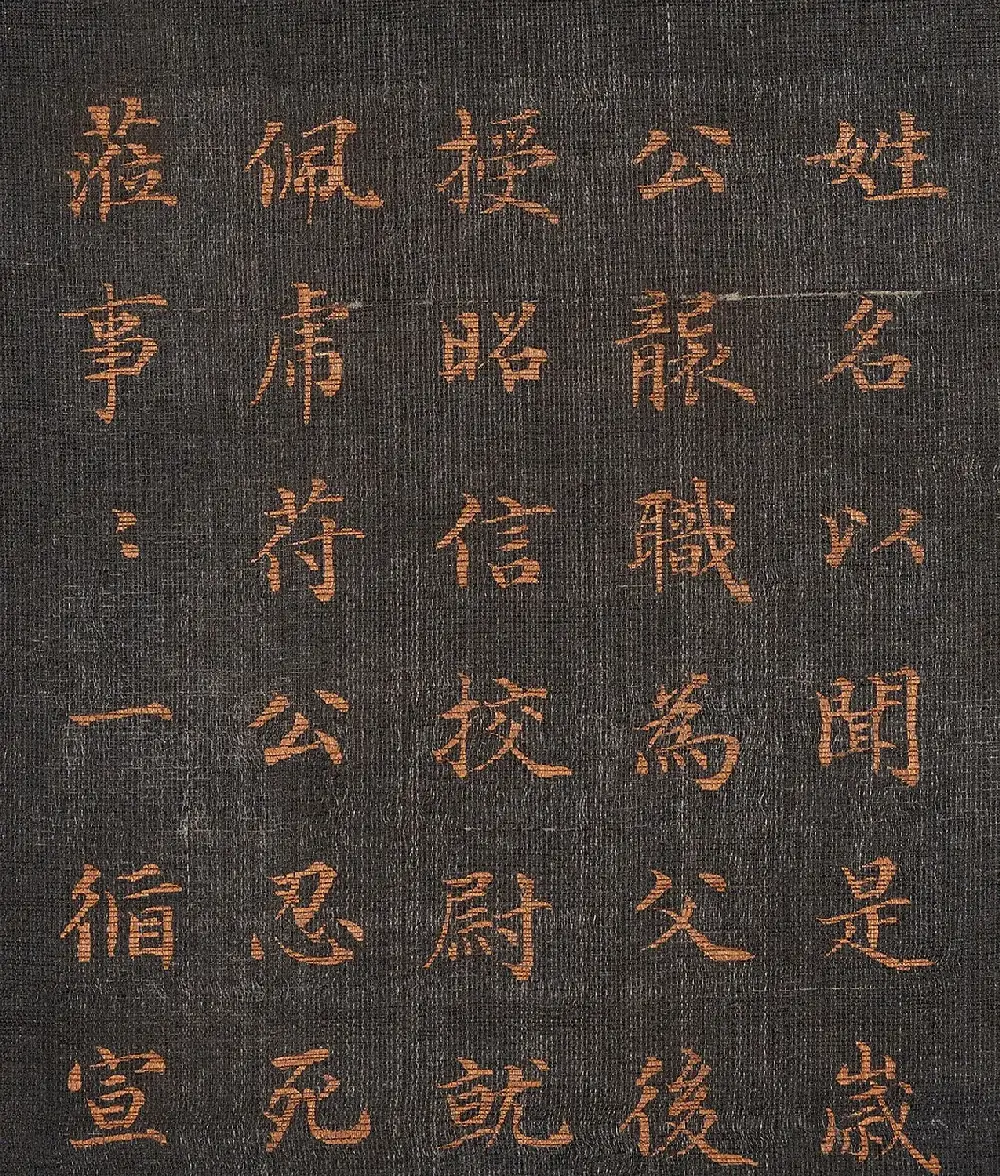 姓名以聞是歲
公襲職為父後
授昭信校尉就
佩虎符公忍死
蒞事〻一循宣